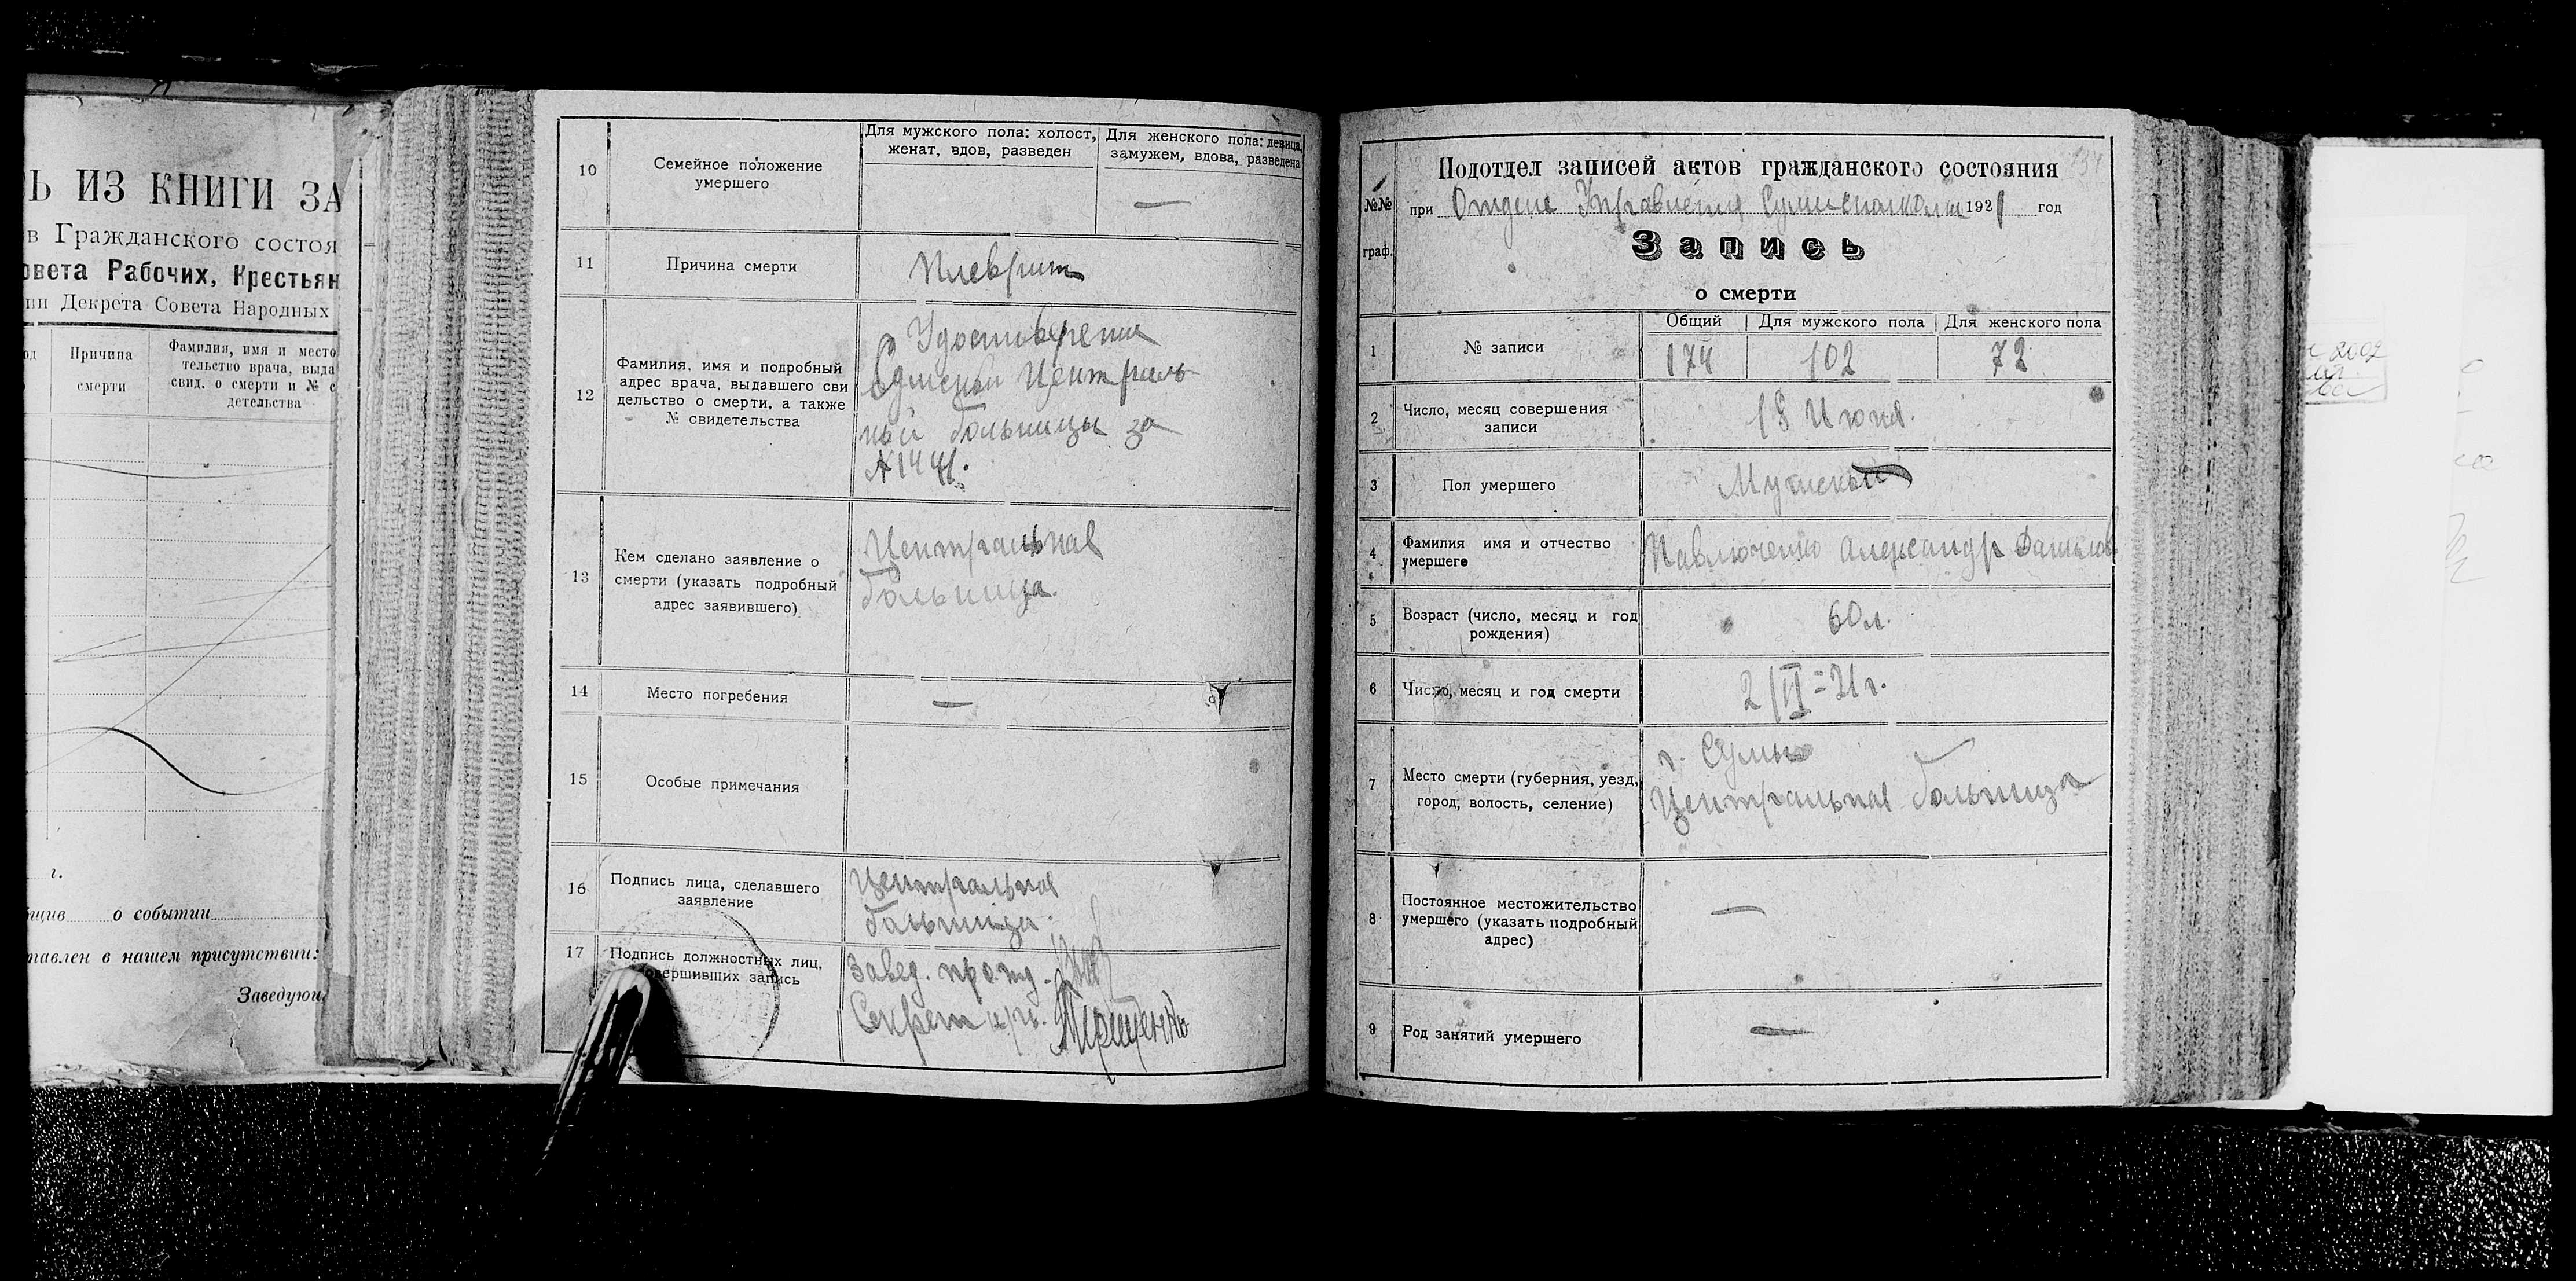 Ь ИЗ КНИГИ ЗА
в Гражданского состоя
овета Рабочих, Крестьян
ии Декрета Совета Народных
од
Причина
смерти
Фамилия, имя и место
тельство врача, выда
свид. о смерти и № с
детельства
г.
о событии
тавлен в нашем присутствии:
Заведующ
10
Семейное положение
умершего
Для мужского пола: холост,
женат, вдов, разведен
Для женского пола: девица,
замужем, вдова, разведена
—
11
Причина смерти
Плеврит
12
Фамилия, имя и подробный
адрес врача, выдавшего сви
дельство о смерти, а также
№ свидетельства
Удостоверение
Сумской Централь
ной больницы за
№ 1441.
13
Кем сделано заявление о
смерти (указать подробный
адрес заявившего)
Центральная
больница.
14
Место погребения
—
15
Особые примечания
16
Подпись лица, сделавшего
заявление
Центральная
больница.
17
Подпись должностных лиц,
совершивших запись
Завед.
Секрет
Терещенко
№№
граф.
Подотдел записей актов гражданского состояния
при Отделе Управления Сумисполкома 1921 год
Запись
о смерти
1
№ записи
Общий
Для мужского пола
Для женского пола
174
102
72
2
Число, месяц совершения
записи
18 Июня.
3
Пол умершего
Мужской
4
Фамилия имя и отчество
умершего
Павлюченко Александр Данилов
5
Возраст (число, месяц и год
рождения)
60 л.
6
Число, месяц и год смерти
2/VI=21 г.
7
Место смерти (губерния, уезд,
город, волость, селение)
г. Сумы
Центральная больница
8
Постоянное местожительство
умершего (указать подробный
адрес)
—
9
Род занятий умершего
—
2002